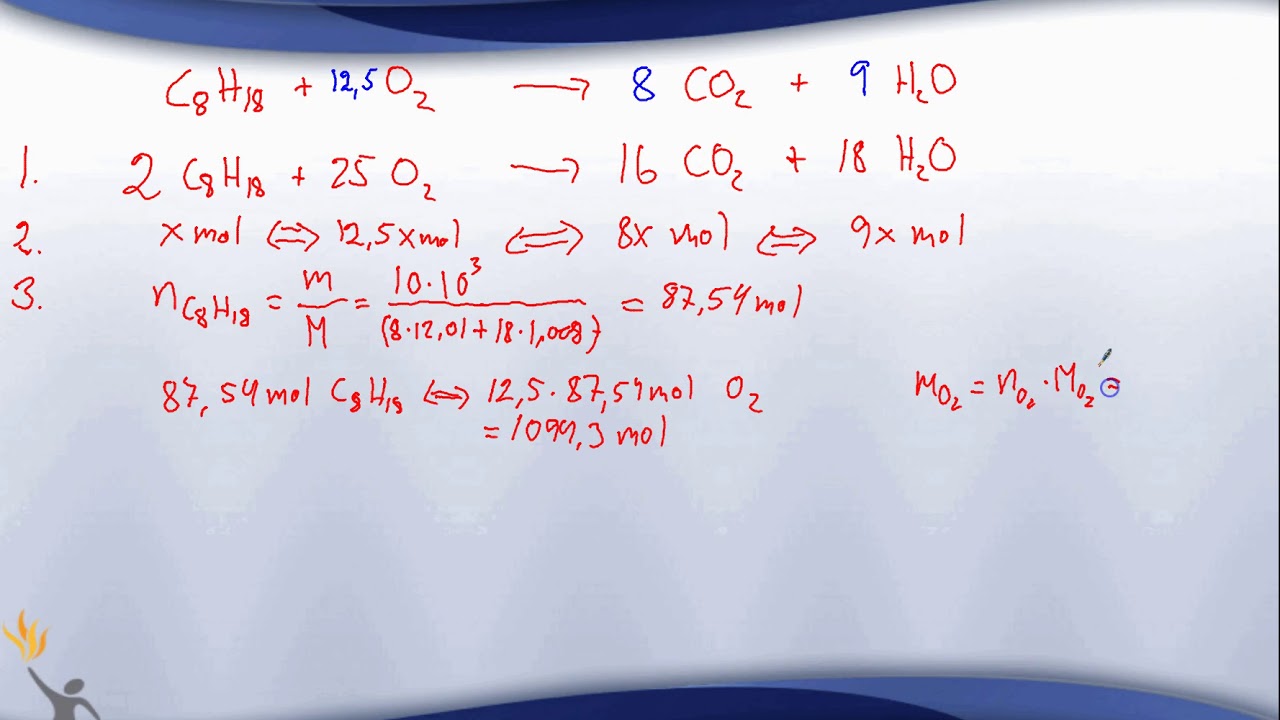 C₈H₁₈ + 12,5 O₂ → 8 CO₂ + 9 H₂O
1. 2 C₈H₁₈ + 25 O₂ → 16 CO₂ + 18 H₂O
2. x mol ⇔ 12,5x mol ⇔ 8x mol ⇔ 9x mol
3. n C₈H₁₈ = m/M = 10·10³/(8·12,01+18·1,008) = 87,54 mol
87,54 mol C₈H₁₈ ⇔ 12,5·87,54 mol O₂
= 1094,3 mol
m O₂ = n O₂ · M O₂ =